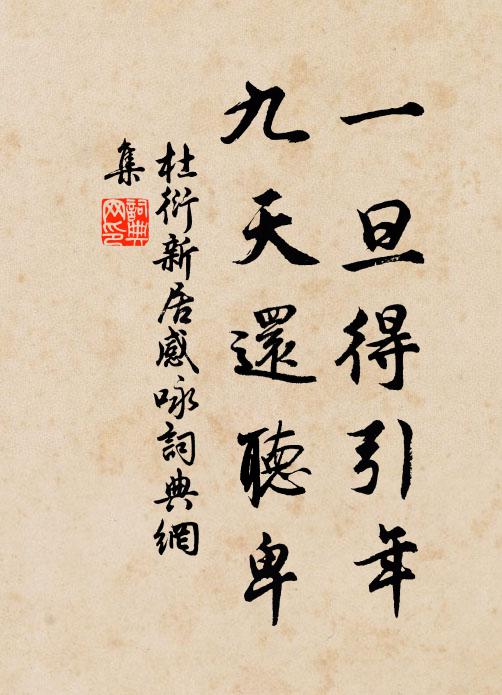 一旦得引年
九天還聽卑
杜衍新居感咏詞典網
集
詞典網印